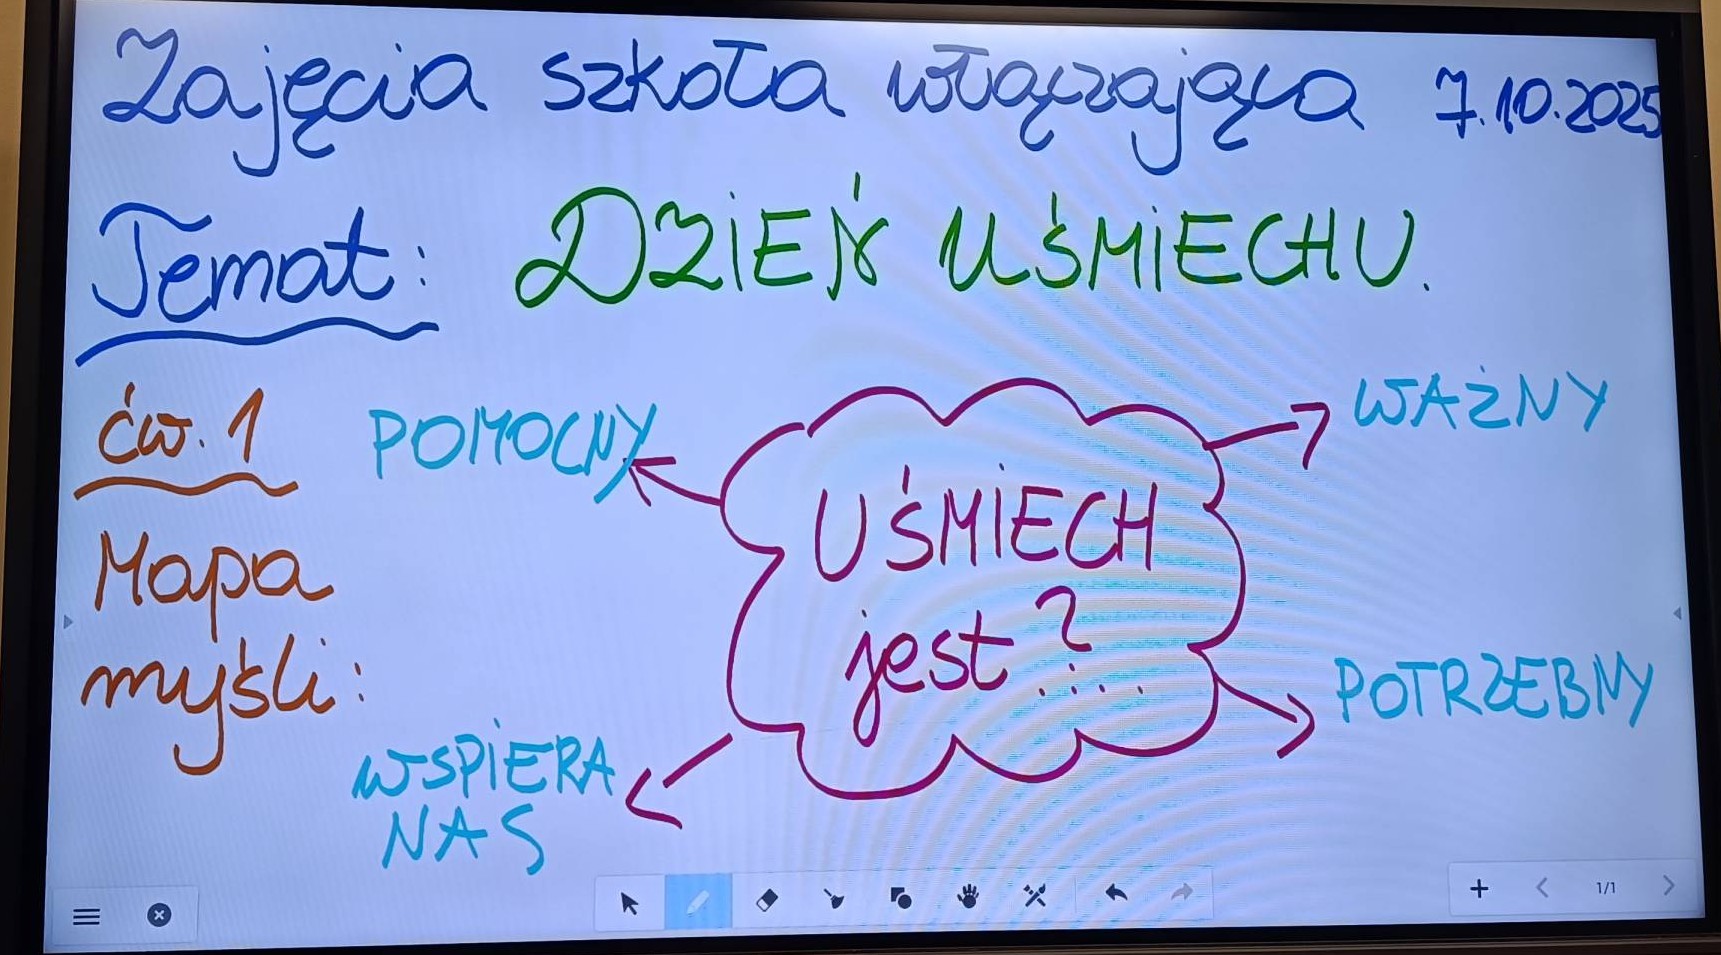 Zajęcia szkoła włączająca 7.10.2025
Temat: DZIEŃ UŚMIECHU.
ćw. 1
Mapa
myśli:
POMOCNY
WAŻNY
UŚMIECH
jest?....
POTRZEBNY
WSPIERA
NAS
1/1